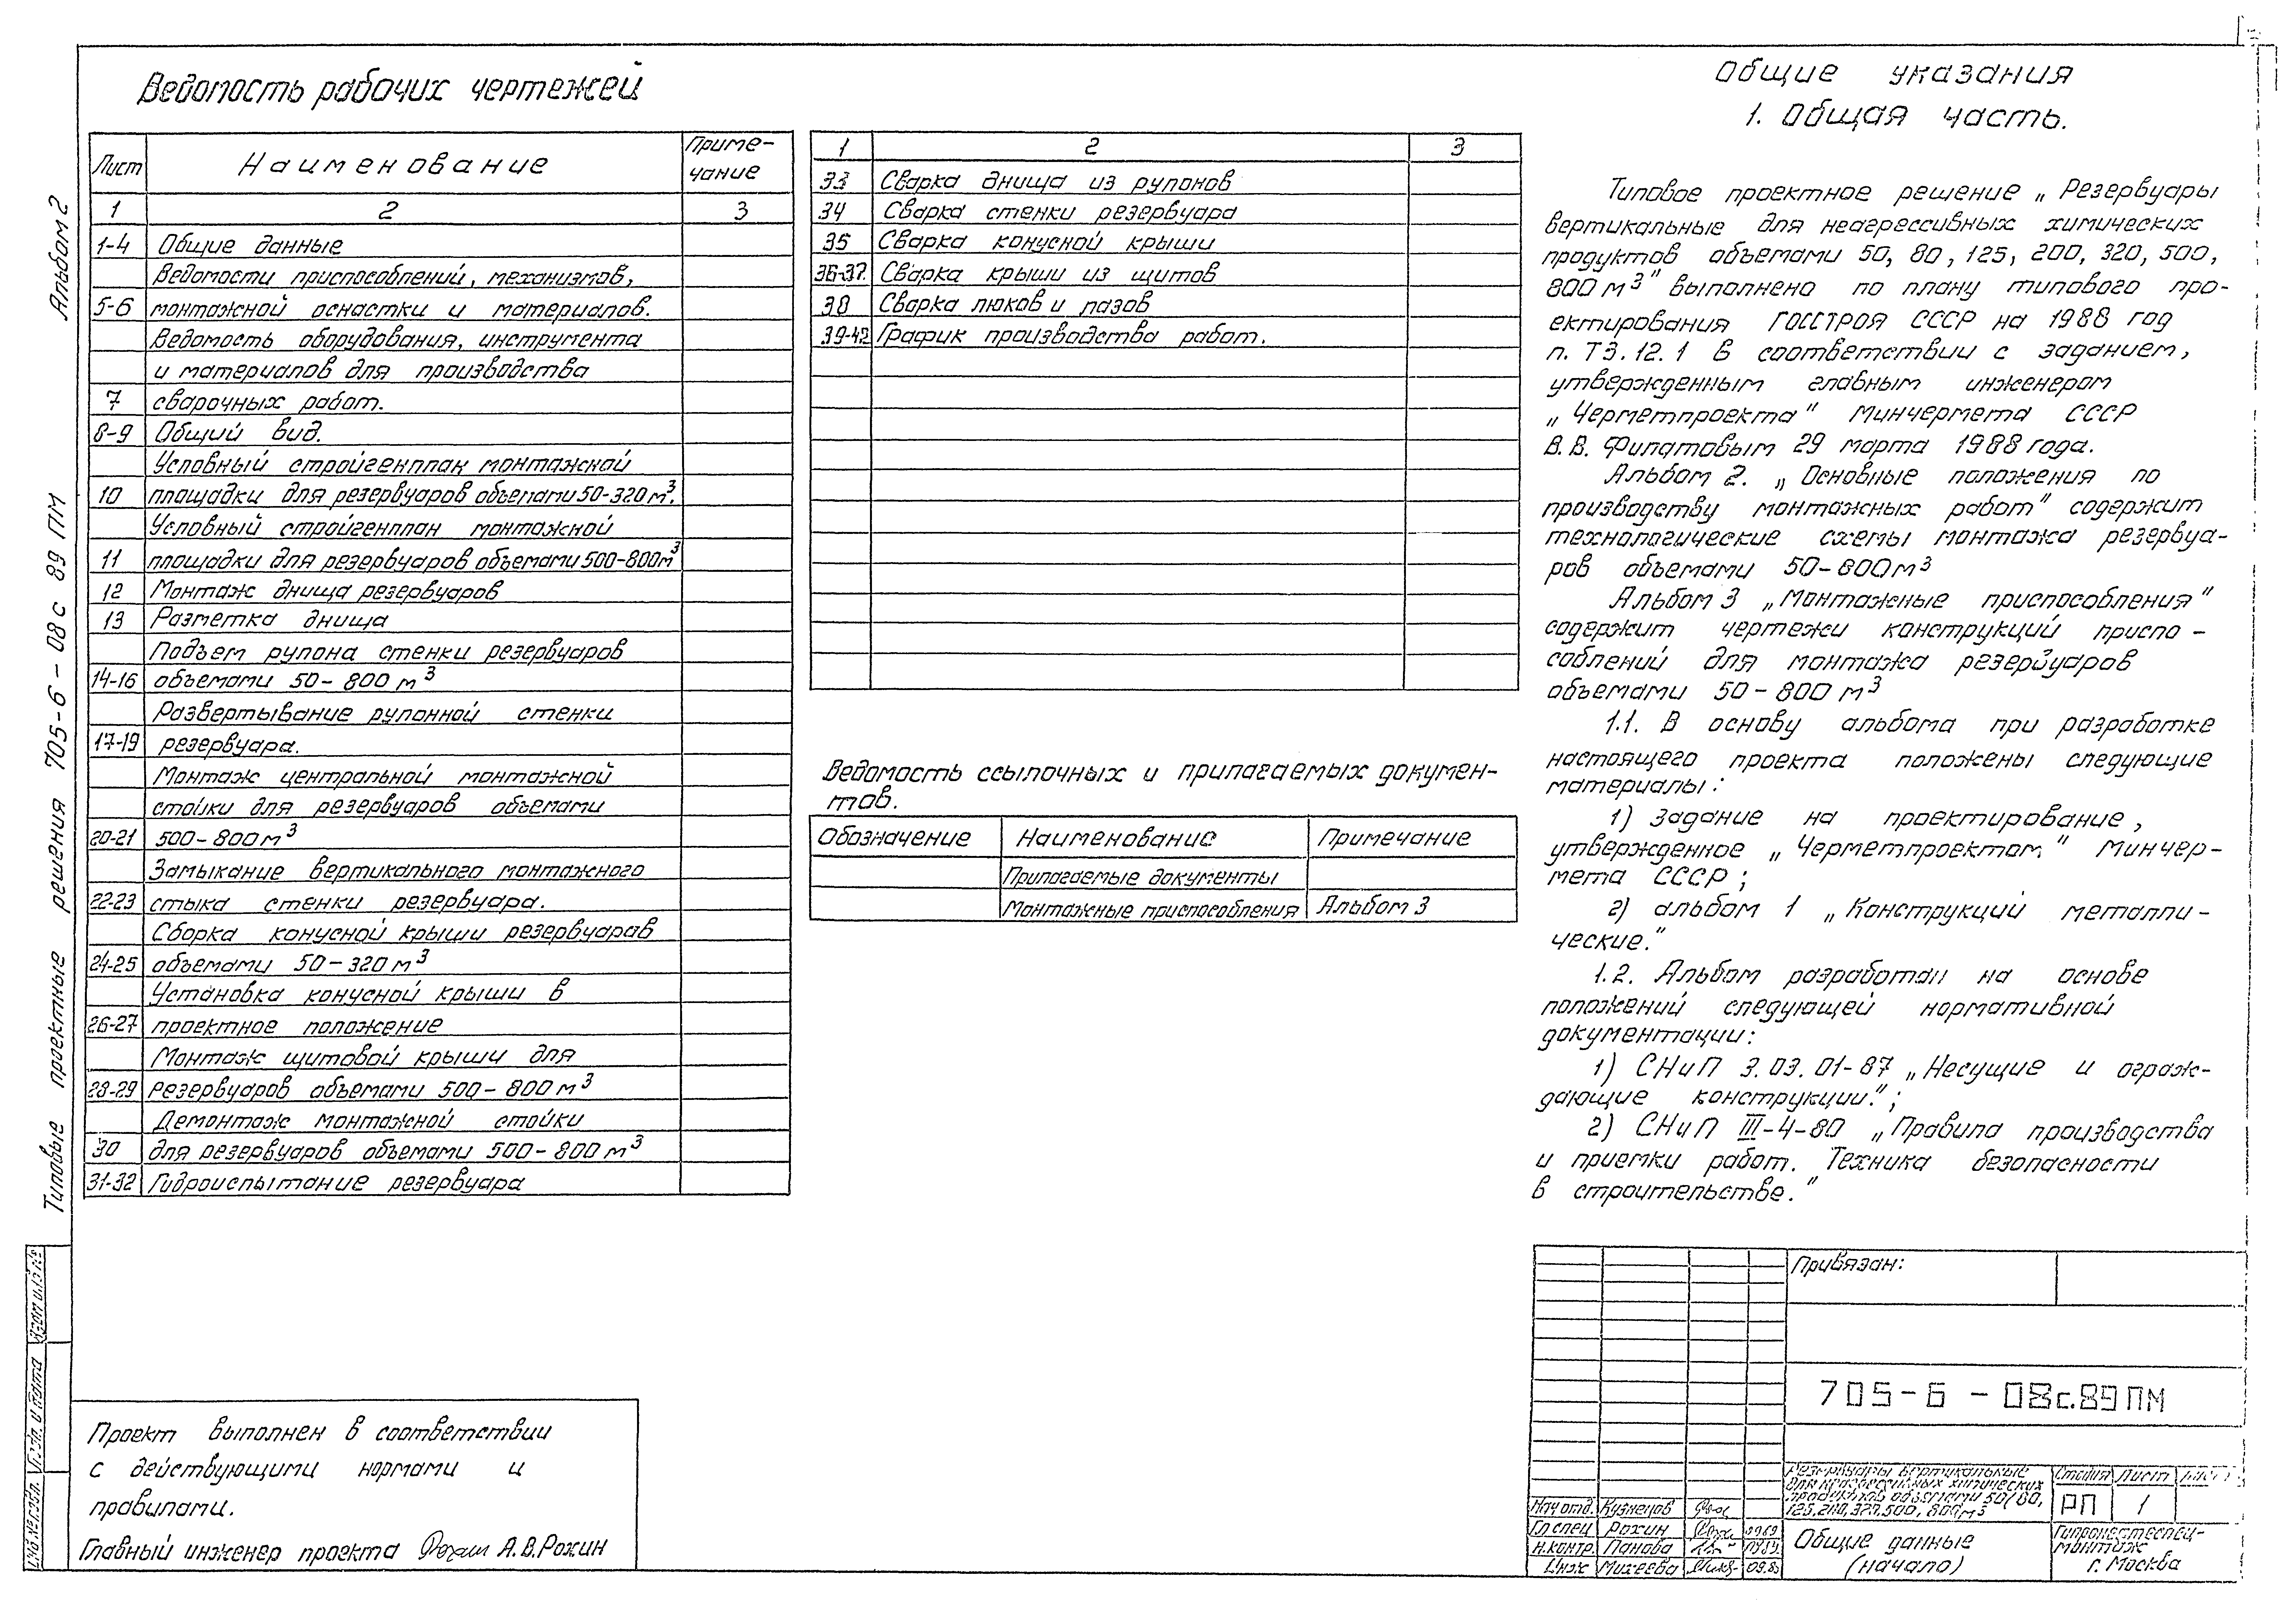 Альбом 2
Типовые проектные решения 705-6-08с 89 ПМ
Ведомость рабочих чертежей
Лист Наименование Приме-
чание
1 2 3
1-4 Общие данные
Ведомости приспособлений, механизмов,
5-6 монтажной оснастки и материалов.
Ведомость оборудования, инструмента
и материалов для производства
7 сварочных работ.
8-9 Общий вид.
Условный стройгенплан монтажной
10 площадки для резервуаров объемами 50-320 м³.
Условный стройгенплан монтажной
11 площадки для резервуаров объемами 500-800м³
12 Монтаж днища резервуаров
13 Разметка днища
Подъем рулона стенки резервуаров
14-16 объемами 50-800 м³
Развертывание рулонной стенки
17-19 резервуара.
Монтаж центральной монтажной
стойки для резервуаров объемами
20-21 500-800м³
Замыкание вертикального монтажного
22-23 стыка стенки резервуара.
Сборка конусной крыши резервуаров
24-25 объемами 50-320 м³
Установка конусной крыши в
26-27 проектное положение
Монтаж щитовой крыши для
28-29 резервуаров объемами 500-800м³
Демонтаж монтажной стойки
30 для резервуаров объемами 500-800м³
31-32 Гидроиспытание резервуара
1 2 3
33 Сварка днища из рулонов
34 Сварка стенки резервуара
35 Сварка конусной крыши
36-37. Сварка крыши из щитов
38 Сварка люков и лазов
39-42 График производства работ.
Ведомость ссылочных и прилагаемых докумен-
тов.
Обозначение Наименование Примечание
Прилагаемые документы
Монтажные приспособления Альбом 3
Общие указания
1. Общая часть.
Типовое проектное решение „Резервуары
вертикальные для неагрессивных химических
продуктов объемами 50, 80, 125, 200, 320, 500,
800 м³" выполнено по плану типового про-
ектирования ГОССТРОЯ СССР на 1988 год
п. Т3.12.1 в соответствии с заданием,
утвержденным главным инженером
„Черметпроекта" Минчермета СССР
В.В. Филатовым 29 марта 1988 года.
Альбом 2. „Основные положения по
производству монтажных работ" содержит
технологические схемы монтажа резервуа-
ров объемами 50-800м³
Альбом 3 „Монтажные приспособления"
содержит чертежи конструкций приспо-
соблений для монтажа резервуаров
объемами 50-800 м³
1.1. В основу альбома при разработке
настоящего проекта положены следующие
материалы:
1) задание на проектирование,
утвержденное „Черметпроектом" Минчер-
мета СССР;
2) альбом 1 „Конструкций металли-
ческие."
1.2. Альбом разработан на основе
положений следующей нормативной
документации:
1) СНиП 3.03.01-87 „Несущие и ограж-
дающие конструкции.";
2) СНиП III-4-80 „Правила производства
и приемки работ. Техника безопасности
в строительстве."
Проект выполнен в соответствии
с действующими нормами и
правилами.
Главный инженер проекта А.В.Рохин
Привязан:
705-6-08с.89ПМ
Резервуары вертикальные
для неагрессивных химических
продуктов объемами 50, 80,
125, 200, 320, 500, 800м³
Стадия Лист
РП 1
Общие данные
(начало)
Гипронефтеспец-
монтаж
г. Москва
Нач отд. Кузнецов
Гл спец Рохин 0989
Н.контр. Панова 09.89.
Инж Михеева 09.89
Инв № подл. Подп. и дата Взам инв №